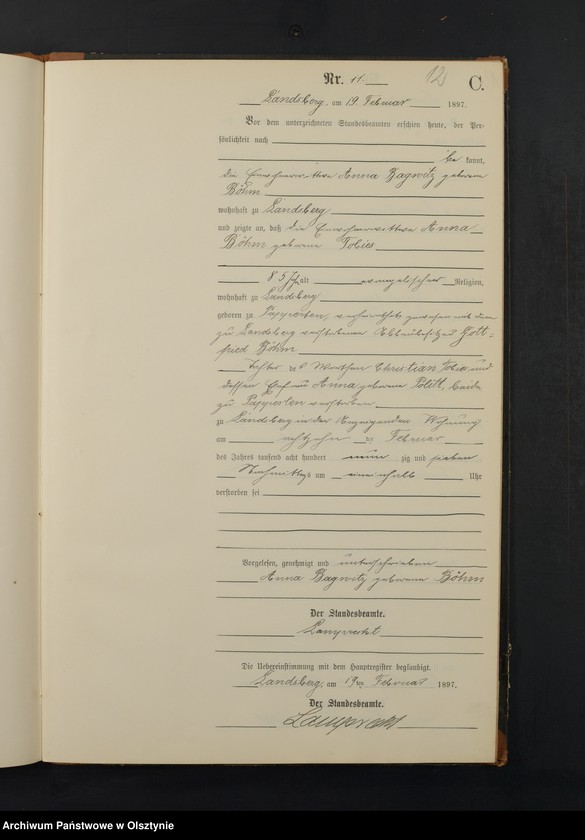 Nr. 11. 12 C.
Landsberg, am 19. Februar 1897.
Vor dem unterzeichneten Standesbeamten erschien heute, der Per-
sönlichkeit nach
be kannt,
die Anna Bagwitz geborene
Böhm
wohnhaft zu Landsberg
und zeigte an, daß die Anna
Böhm geborene Tobies
85 J. alt evangelischer Religion,
wohnhaft zu Landsberg
geboren zu Papperten, verheirathet gewesen mit dem
zu Landsberg verstorbenen Gott-
fried Böhm
Tochter des Christian Tobies und
dessen Ehefrau Anna geborene Politt, beide
zu verstorben
zu Landsberg in der Wohnung
am achtzehn ten Februar
des Jahres tausend acht hundert neun zig und sieben
Nachmittags um einenhalb Uhr
verstorben sei
Vorgelesen, genehmigt und unterschrieben
Anna Bagwitz geborene Böhm
Der Standesbeamte.
Lamprecht
Die Uebereinstimmung mit dem Hauptregister beglaubigt.
Landsberg, am 19ten Februar 1897.
Der Standesbeamte.
Lamprecht
Archiwum Państwowe w Olsztynie